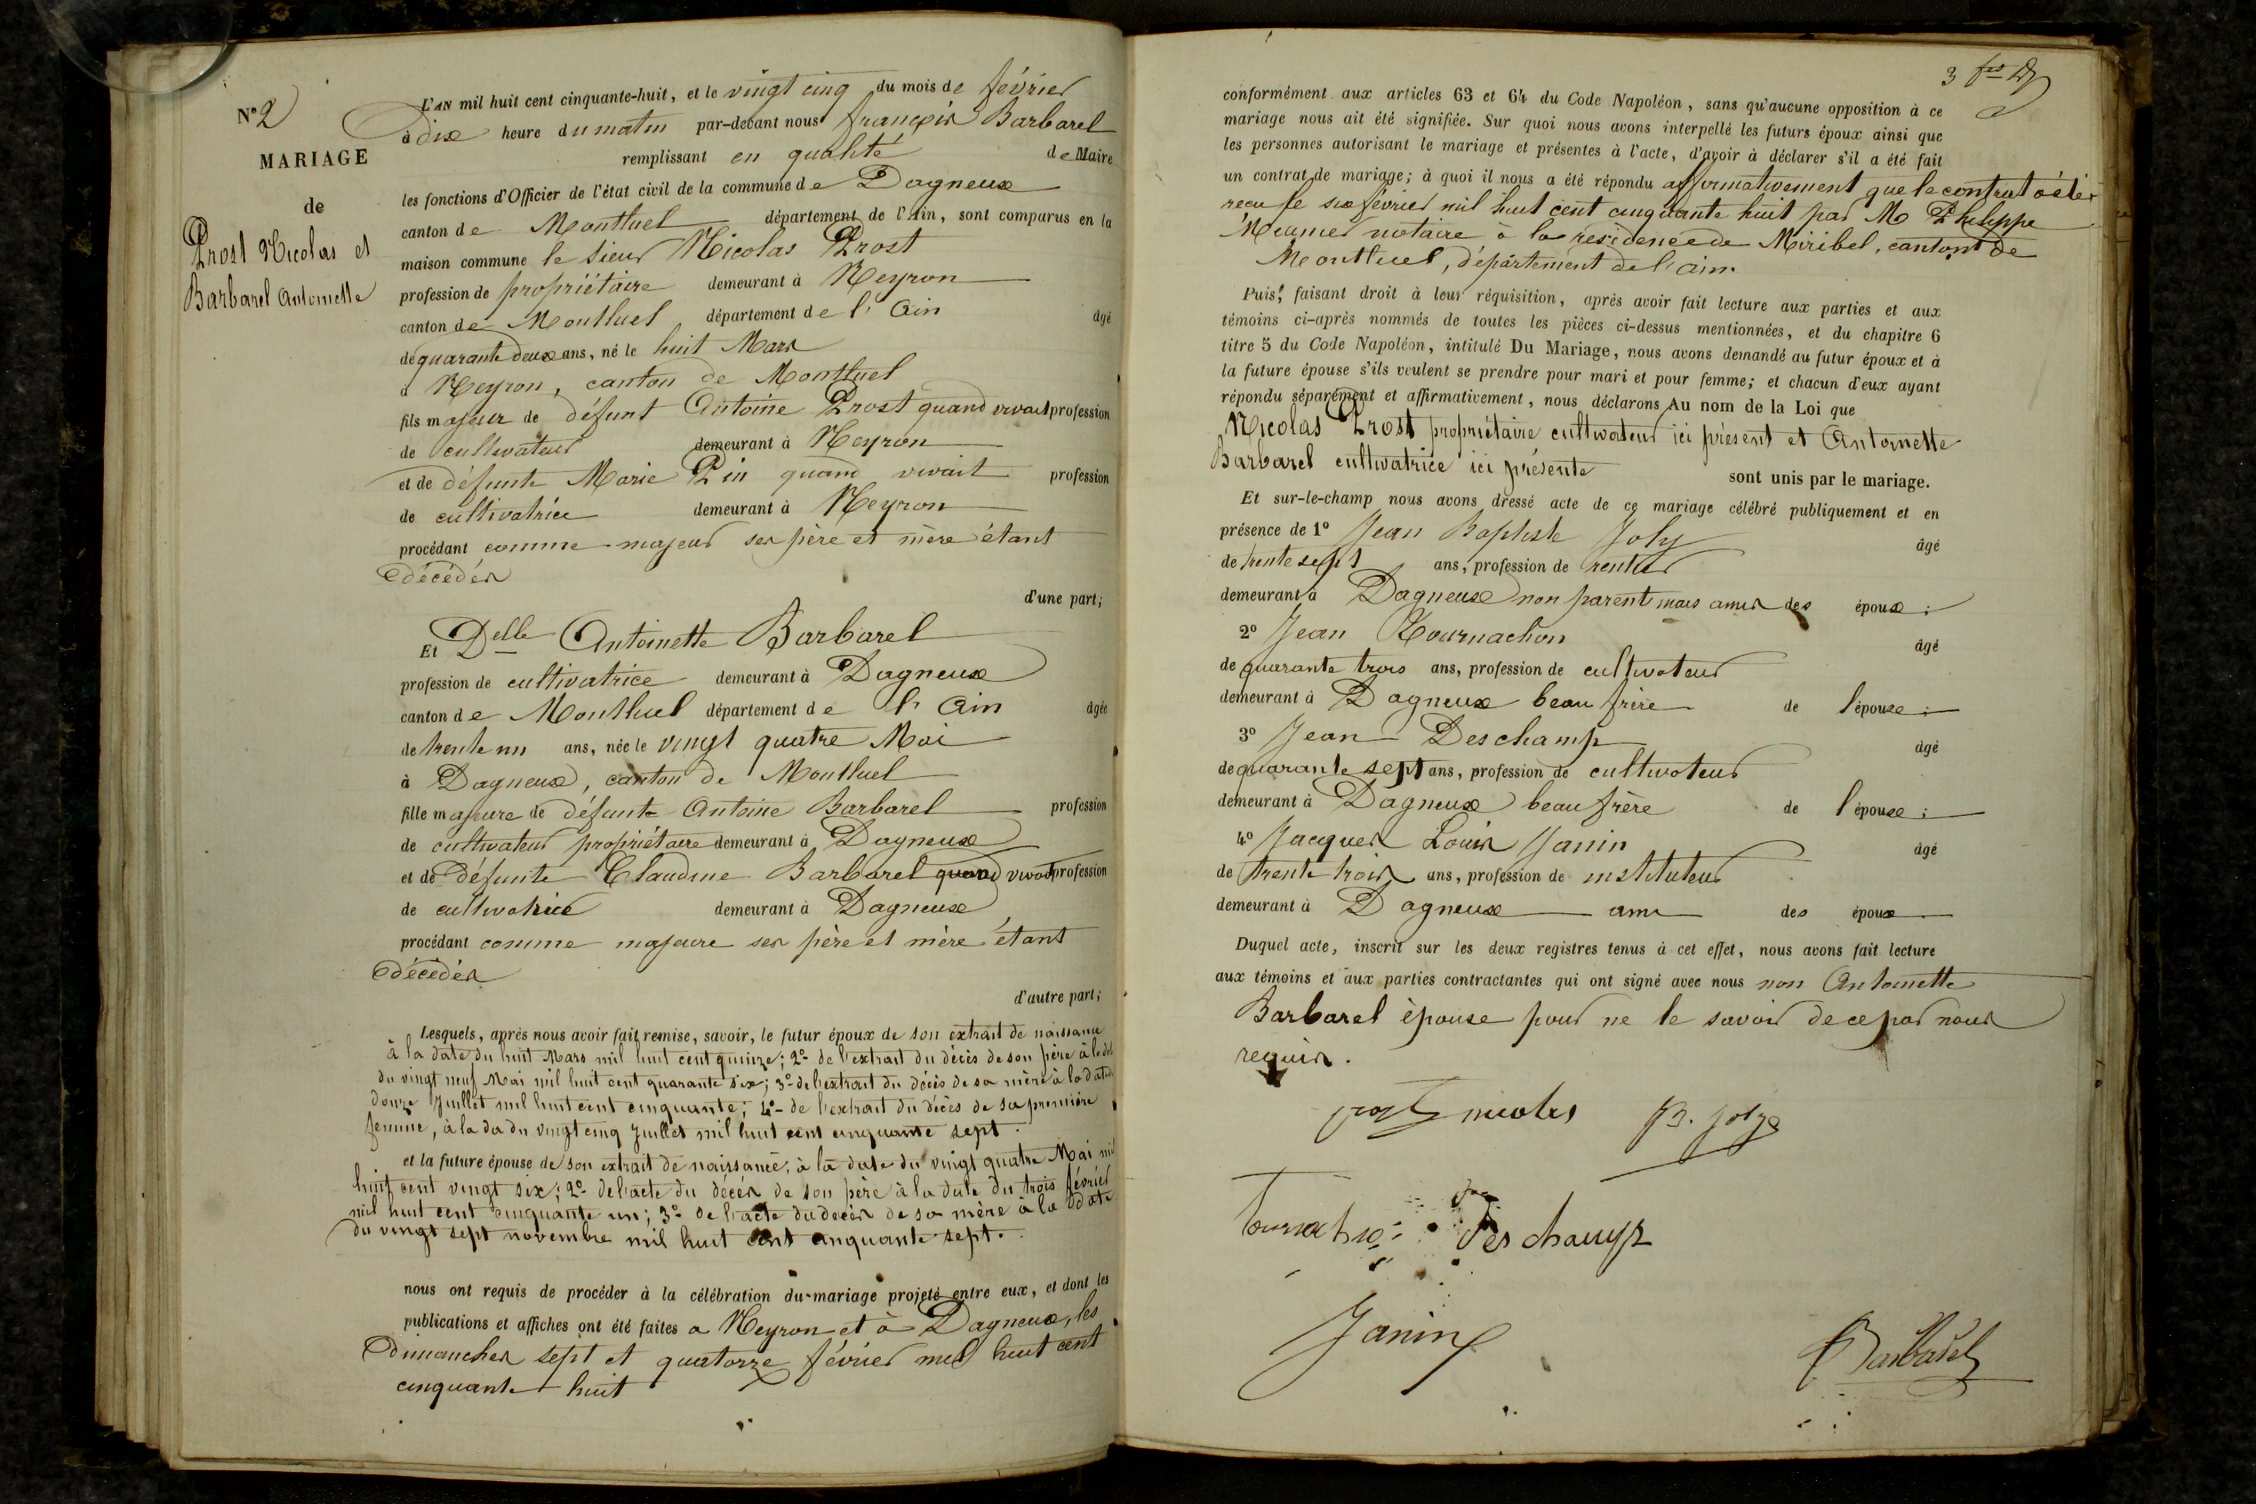 N° 2
MARIAGE
de
Prost Nicolas et
Barbarel Antoinette
L'AN mil huit cent cinquante-huit, et le vingt cinq du mois de février
à dix heure du matin par-devant nous françois Barbarel
remplissant en qualité de Maire
les fonctions d'Officier de l'état civil de la commune de Dagneux
canton de Montluel département de l'Ain, sont comparus en la
maison commune le sieur Nicolas Prost
profession de propriétaire demeurant à Neyron
canton de Montluel département de l'Ain âgé
de quarante deux ans, né le huit Mars
à Neyron, canton de Montluel
fils majeur de défunt Antoine Prost quand vivait profession
de cultivateur demeurant à Neyron
et de défunte Marie Pin quand vivait profession
de cultivatrice demeurant à Neyron
procédant comme majeur ses père et mère étant
décédés
d'une part;
Et Delle Antoinette Barbarel
profession de cultivatrice demeurant à Dagneux
canton de Montluel département de l'Ain âgée
de trente un ans, née le vingt quatre Mai
à Dagneux, canton de Montluel
fille majeure de défunt Antoine Barbarel profession
de cultivateur propriétaire demeurant à Dagneux
et de défunte Claudine Barbarel quand vivait profession
de cultivatrice demeurant à Dagneux
procédant comme majeure ses père et mère étant
décédés
d'autre part;
Lesquels, après nous avoir fait remise, savoir, le futur époux de son extrait de naissance
à la date du huit Mars mil huit cent quinze; 2° de l'extrait du décès de son père à la date
du vingt neuf Mai mil huit cent quarante six; 3° de l'extrait du décès de sa mère à la date du
douze Juillet mil huit cent cinquante; 4° de l'extrait du décès de sa première
femme, à la da du vingt cinq Juillet mil huit cent cinquante sept.
et la future épouse de son extrait de naissance, à la date du vingt quatre Mai mil
huit cent vingt six; 2° de l'acte du décès de son père à la date du trois février
mil huit cent cinquante un; 3° de l'acte du décès de sa mère à la date
du vingt sept novembre mil huit cent cinquante sept.
nous ont requis de procéder à la célébration du mariage projeté entre eux, et dont les
publications et affiches ont été faites a Neyron et à Dagneux, les
dimanches sept et quatorze février mil huit cent
cinquante huit
3
conformément aux articles 63 et 64 du Code Napoléon, sans qu'aucune opposition à ce
mariage nous ait été signifiée. Sur quoi nous avons interpellé les futurs époux ainsi que
les personnes autorisant le mariage et présentes à l'acte, d'avoir à déclarer s'il a été fait
un contrat de mariage; à quoi il nous a été répondu affirmativement que le contrat a été
recu le six février mil huit cent cinquante huit par M Philippe
notaire à la résidence de Miribel, canton de
Montluel, département de l'ain.
Puis, faisant droit à leur réquisition, après avoir fait lecture aux parties et aux
témoins ci-après nommés de toutes les pièces ci-dessus mentionnées, et du chapitre 6
titre 5 du Code Napoléon, intitulé Du Mariage, nous avons demandé au futur époux et à
la future épouse s'ils veulent se prendre pour mari et pour femme; et chacun d'eux ayant
répondu séparément et affirmativement, nous déclarons Au nom de la Loi que
Nicolas Prost propriétaire cultivateur ici présent et Antoinette
Barbarel cultivatrice ici présente sont unis par le mariage.
Et sur-le-champ nous avons dressé acte de ce mariage célébré publiquement et en
présence de 1° Jean Baptiste Joly âgé
de trente sept ans, profession de rentier
demeurant à Dagneux non parent mais amis des époux;
2° Jean Tournachon âgé
de quarante trois ans, profession de cultivateur
demeurant à Dagneux beau frère de l'épouse;
3° Jean Deschamp âgé
de quarante sept ans, profession de cultivateur
demeurant à Dagneux beau frère de l'épouse;
4° Jacques Louis Janin âgé
de trente trois ans, profession de instituteur
demeurant à Dagneux ami des époux
Duquel acte, inscrit sur les deux registres tenus à cet effet, nous avons fait lecture
aux témoins et aux parties contractantes qui ont signé avec nous non Antoinette
Barbarel épouse pour ne le savoir de ce par nous
requis.
prost nicolas B. Joly
Deschamps
Janin
Barbarel